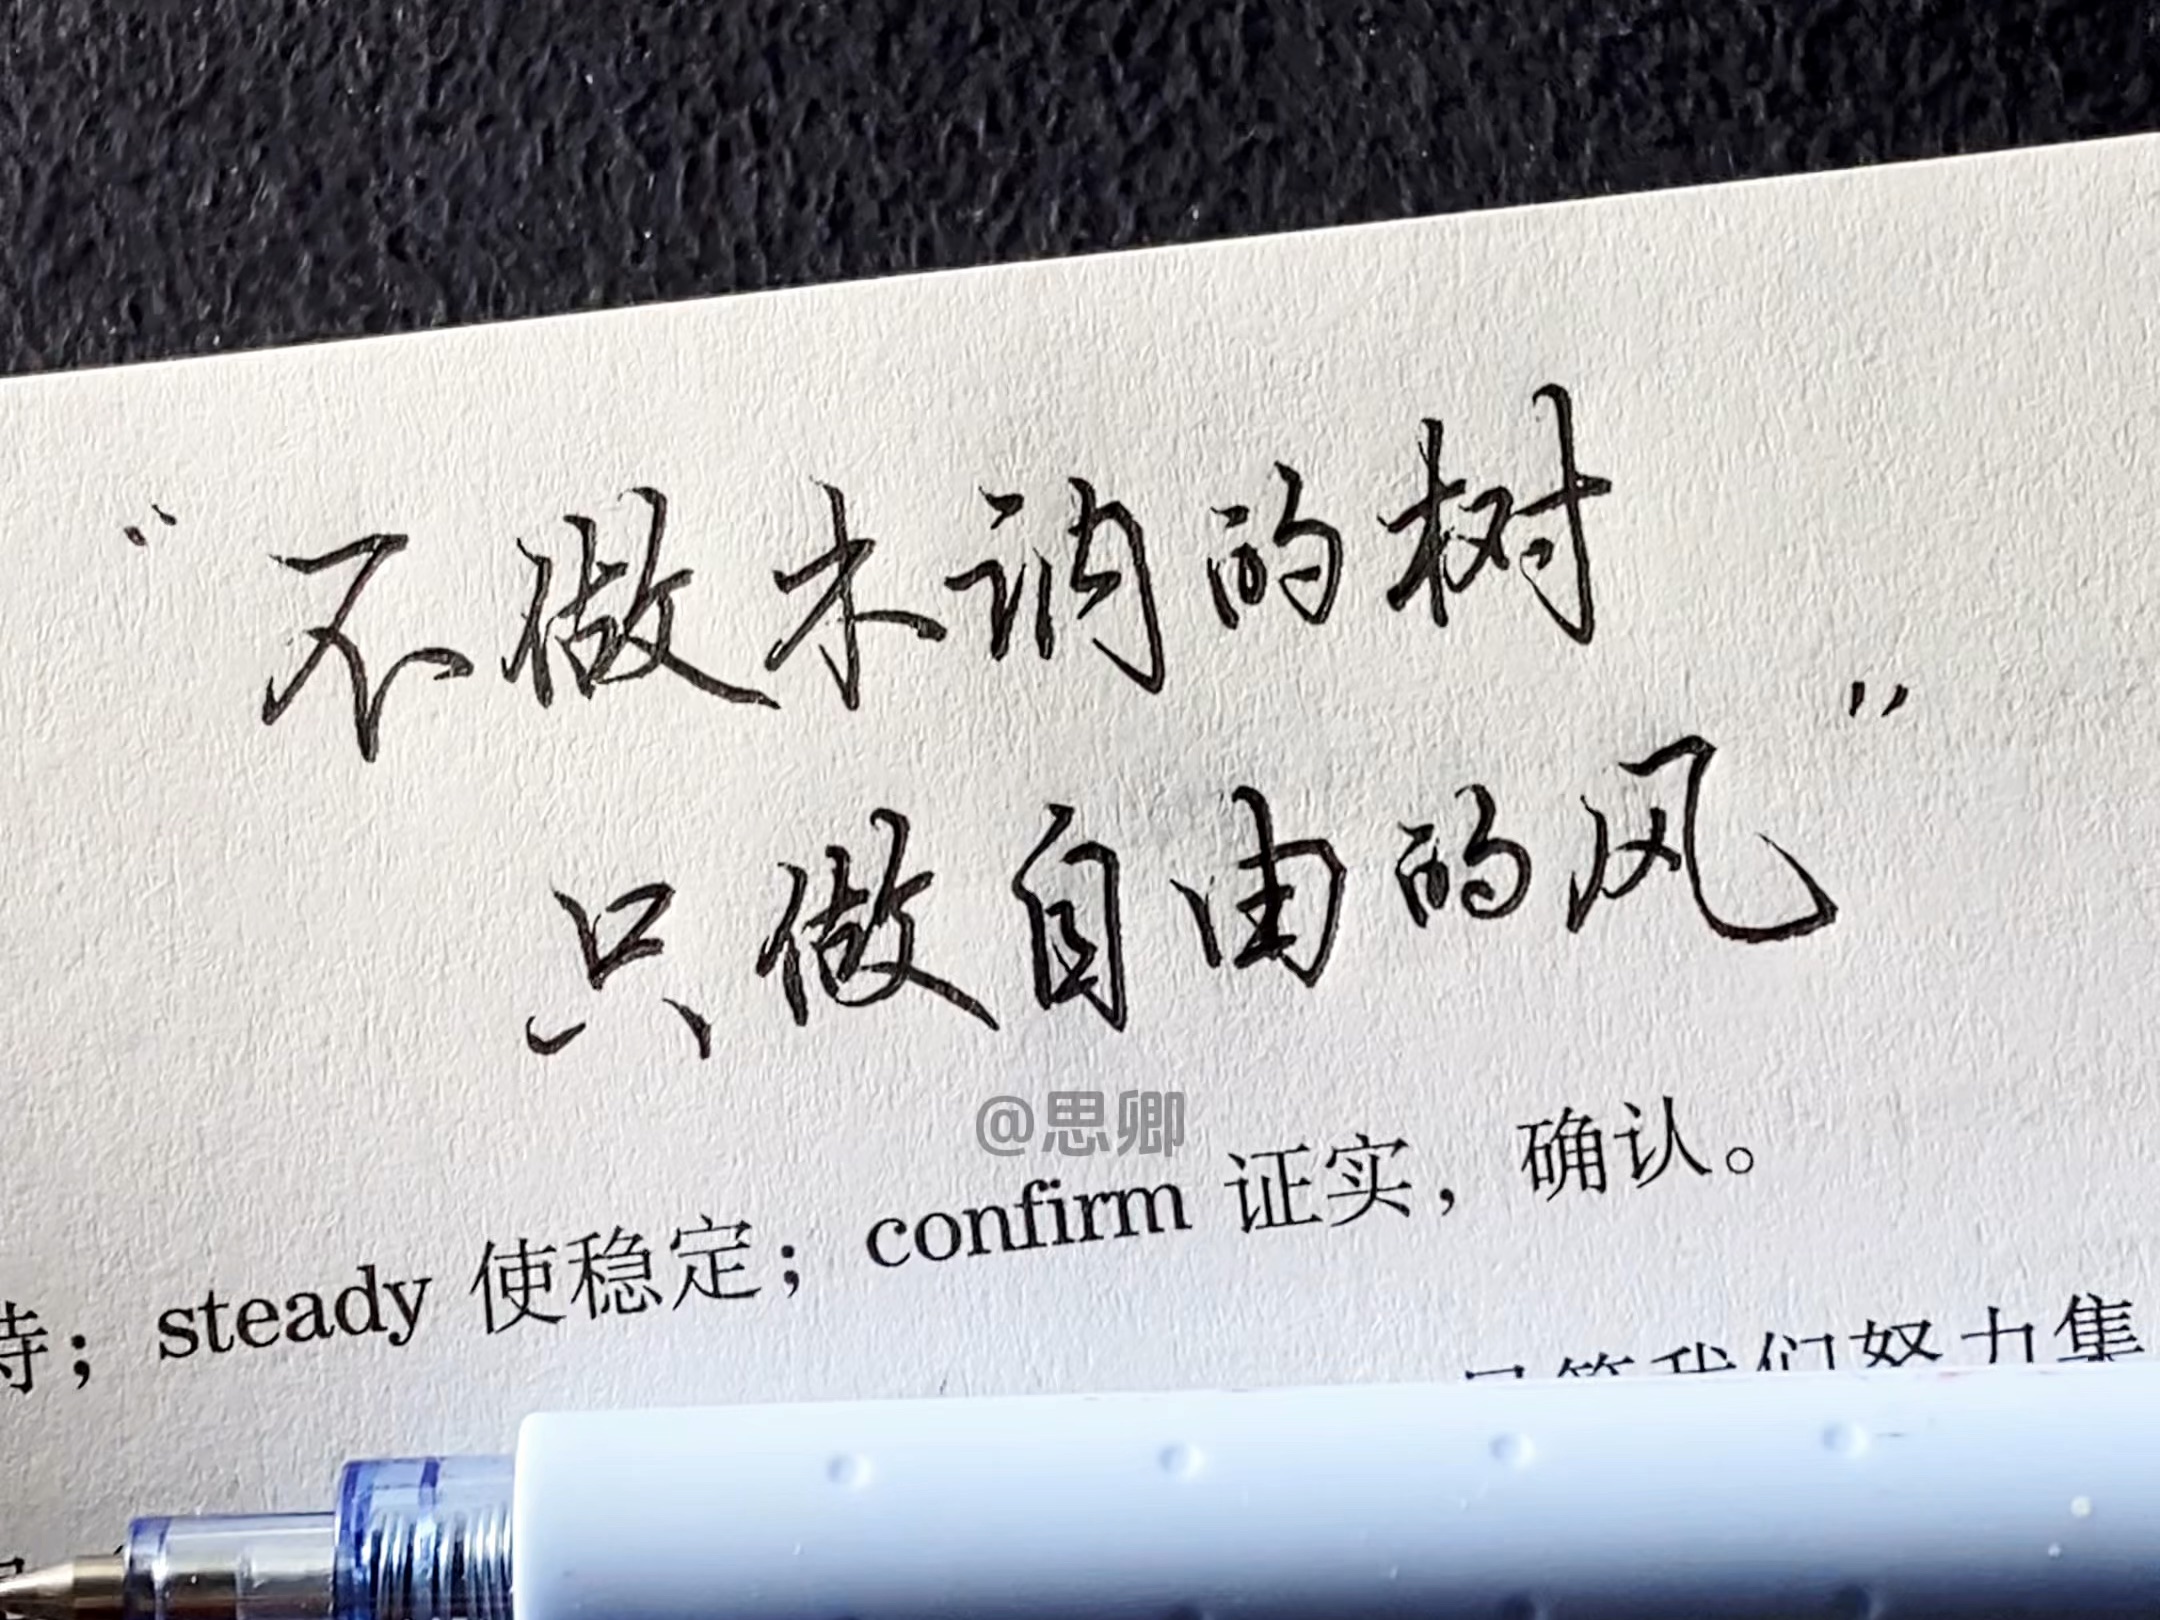 “不做木讷的树
只做自由的风”
@思卿
持；steady 使稳定；confirm 证实，确认。
尽管我们努力集